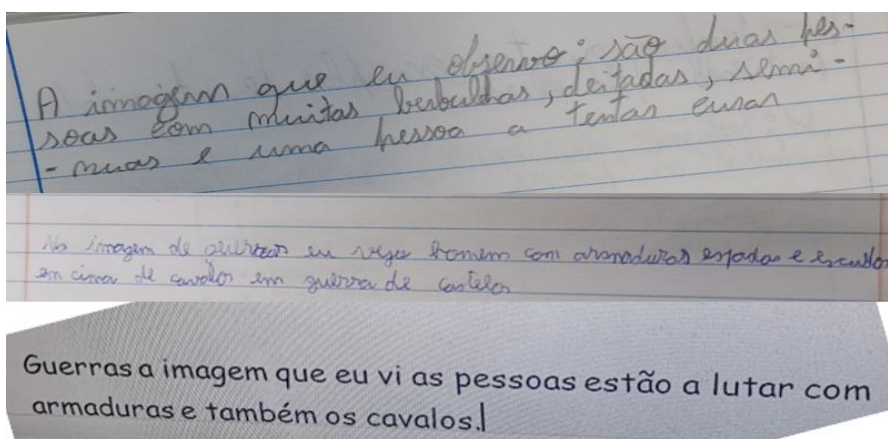 A imagem que eu observo: são duas pes-
soas com muitas berbulhas, deitadas, semi-
-nuas e uma pessoa a tentar curar
Na imagem de guerras eu vejo homem com armaduras espadas e escudos
em cima de cavalos em guerra de castelos
Guerras a imagem que eu vi as pessoas estão a lutar com
armaduras e também os cavalos.